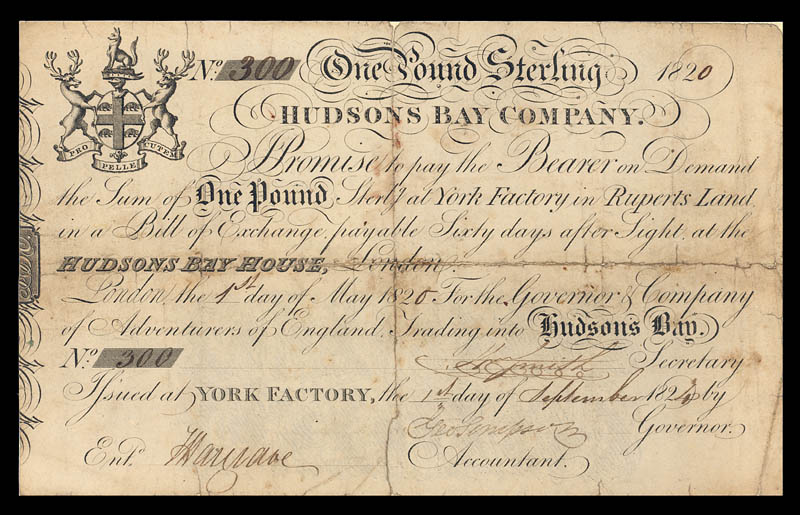 No. 300 One Pound Sterling 1820
HUDSONS BAY COMPANY.
PRO PELLE CUTEM
I Promise to pay the Bearer on Demand
the Sum of One Pound Sterlg. at York Factory in Ruperts Land
in a Bill of Exchange, payable Sixty days after Sight, at the
HUDSONS BAY HOUSE, London.
London, the 1st day of May 1820 For the Governor & Company
of Adventurers of England, Trading into Hudsons Bay.
No. 300 Smith Secretary
Issued at YORK FACTORY, the 1st day of September 182 by
Geo Simpson Governor.
Entd. Hargrave Accountant.